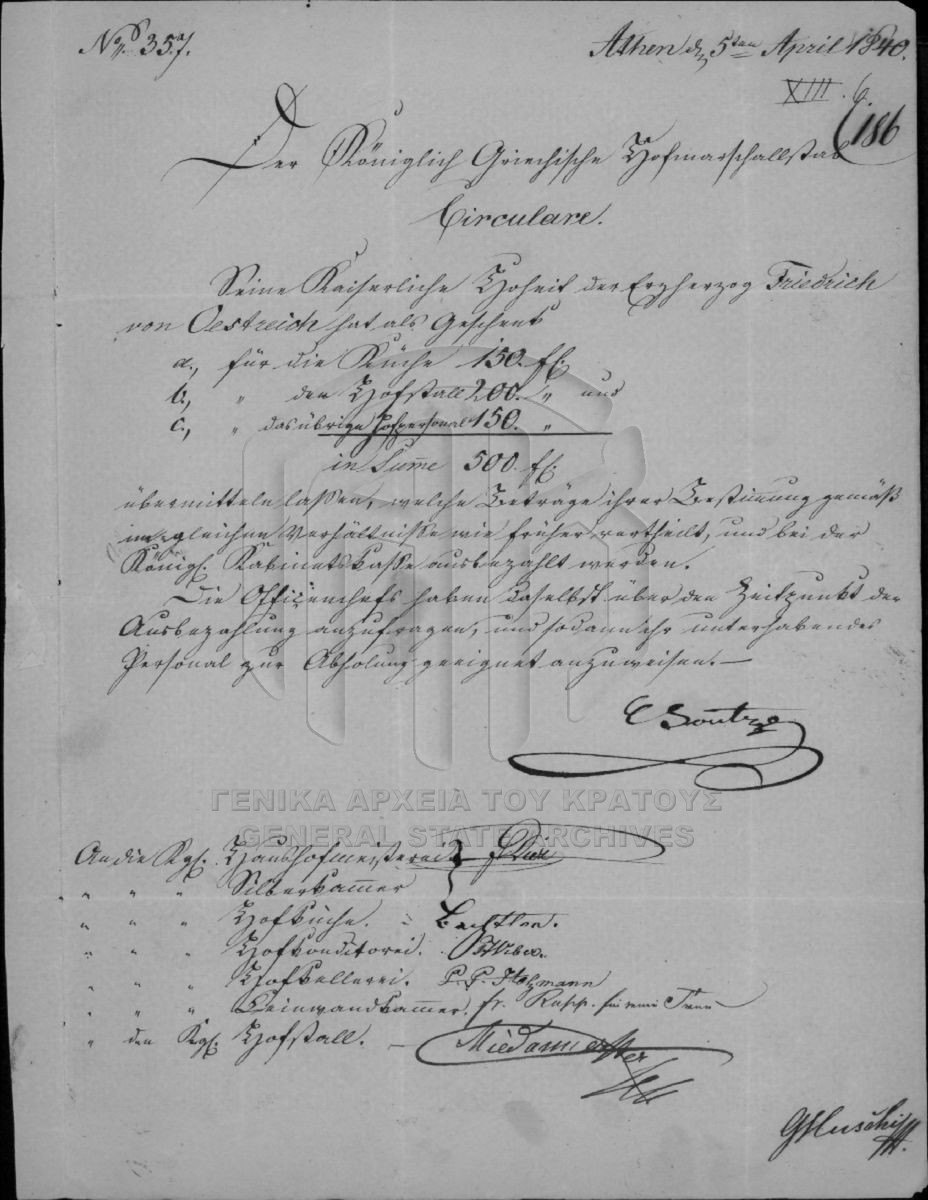 No. 357.
Athen d. 5ten April 1840.
XIII. 6.
186
Der Königlich Griechische Hofmarschallstab
Circulare.
Seine Kaiserliche Hoheit der Erzherzog Friedrich
von Oestreich hat als Geschenk
a., für die Küche 150. fl.
b., " den Hofstall 200. " und
c., " das übrige Hofpersonal 150. "
in Sum̄e 500. fl.
übermitteln lassen, welche Beträge ihrer Bestim̄ung gemäß
im gleichen Verhältnisse wie früher vertheilt, und bei der
Königl. Kabinetskasse ausbezahlt werden.
Die Officenchefs haben daselbst über den Zeitpunkt der
Ausbezahlung anzufragen, und sodann ihr unterhabendes
Personal zur Abholung geeignet anzuweisen. —
C Soutzo
ΓΕΝΙΚΑ ΑΡΧΕΙΑ ΤΟΥ ΚΡΑΤΟΥΣ
GENERAL STATE ARCHIVES
An die Kgl. Haushofmeisterei
" " " Silberkam̄er
" " " Hofküche.
" " " Hofkonditorei.
" " " Hofkellerei. Holzmann
" " " Leinwandkam̄er. fr. Rapp. für meine Frau
" den Kgl. Hofstall.